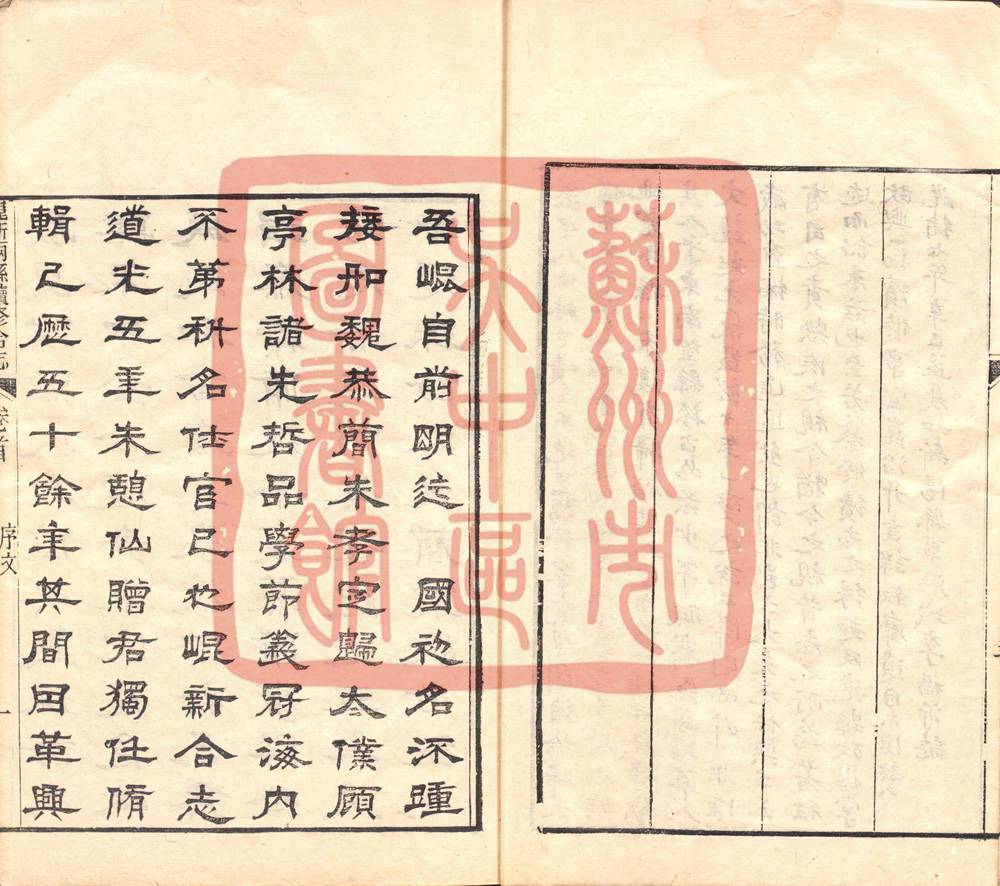 蘇州市
吴中區
圖書館
吾崐自前明迄　國初名沠踵
接如魏恭簡朱孝定歸太僕顧
亭林諸先哲品學節義冠海内
不第科名仕宦已也崐新合志
道光五年朱憩仙贈君獨任脩
輯已歷五十餘年其間因革興
崑新兩縣續修合志　卷首　序文　一